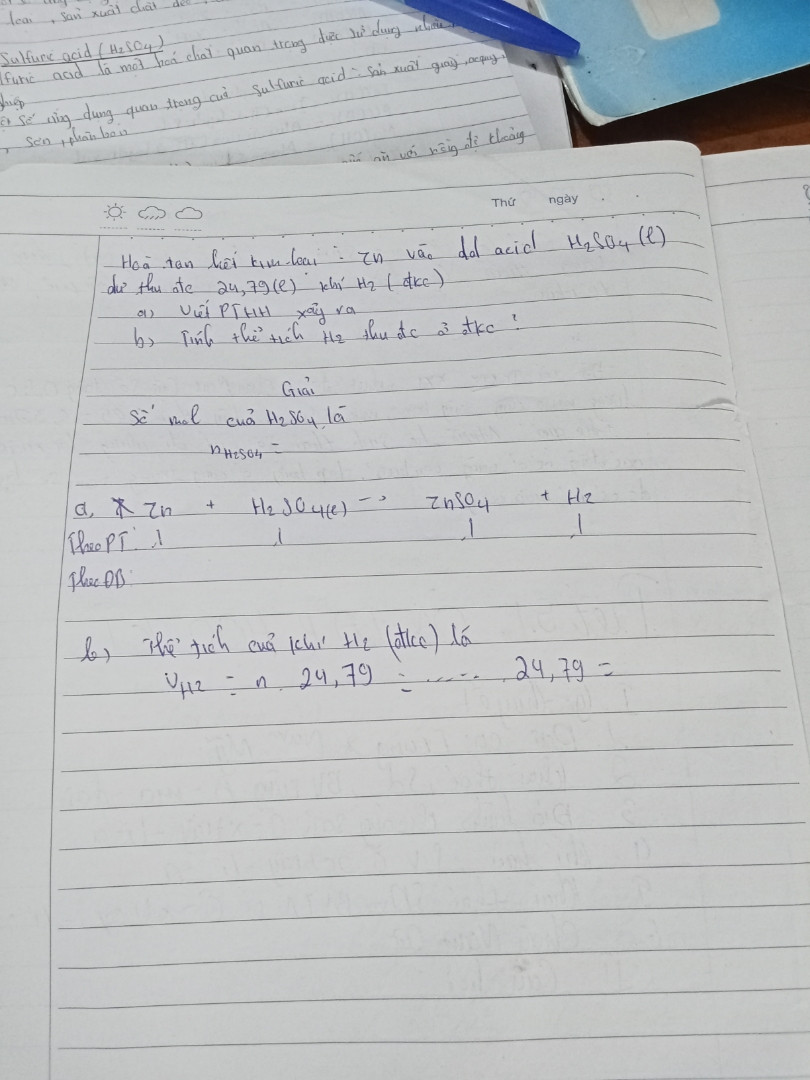 loại, sản xuất chất dẻ
Sulfuric acid (H2SO4)
lfuric acid là một hoá chất quan trọng được sử dụng nhiều
số ứng dụng quan trọng của sulfuric acid: sản xuất giấy, acquy,
, sơn, phân bón
Thứ ngày
Hoà tan hết kim loại : Zn vào dd acid H2SO4(l)
dư thu đc 24,79(l) khí H2 (đkc)
a, Viết PTHH xảy ra
b, Tính thể tích H2 thu đc ở đkc !
Giải
Số mol của H2SO4 là
nH2SO4 =
a, Zn + H2SO4(l) -> ZnSO4 + H2
Theo PT: 1 1 1 1
Theo ĐB:
b, Thể tích của khí H2 (đkc) là
VH2 = n. 24,79 = ..... 24,79 =